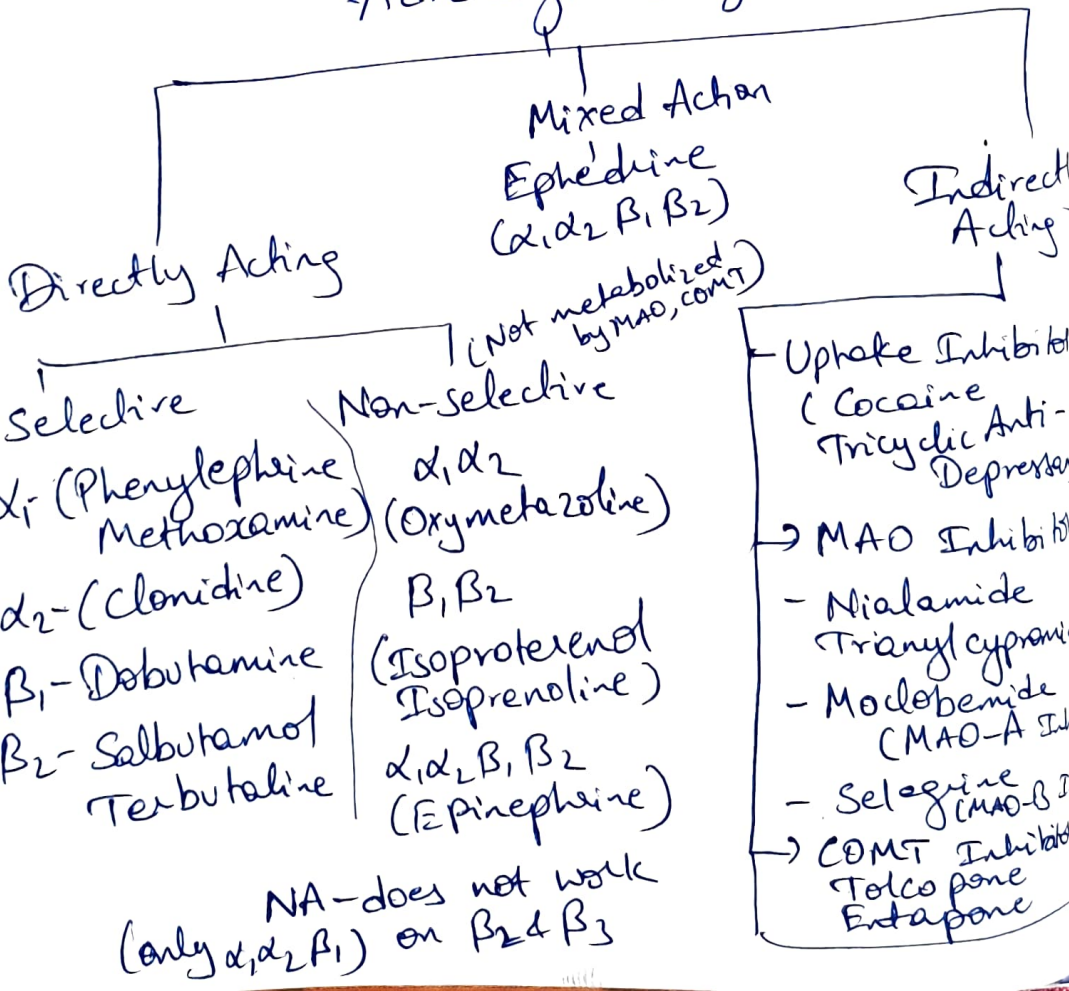 Mixed Action
Ephedrine
(α1α2 β1 β2)
(Not metabolized
by MAO, COMT)
Directly Acting
Selective
(Phenylephrine
Methoxamine)
α2-(Clonidine)
β1-Dobutamine
β2-Salbutamol
Terbutaline
Non-selective
α1α2
(Oxymetazoline)
β1β2
(Isoproterenol
Isoprenoline)
α1α2β1β2
(Epinephrine)
NA-does not work
(only α1α2β1) on β2 & β3
Indirect
Acting
-Uptake Inhibito
(Cocaine
Tricyclic Anti-
Depressa
→ MAO Inhibito
- Nialamide
Trianylcypromi
- Moclobemide
(MAO-A In
- Selegine
(MAO-B I
→ COMT Inhibito
Tolcopone
Entapone